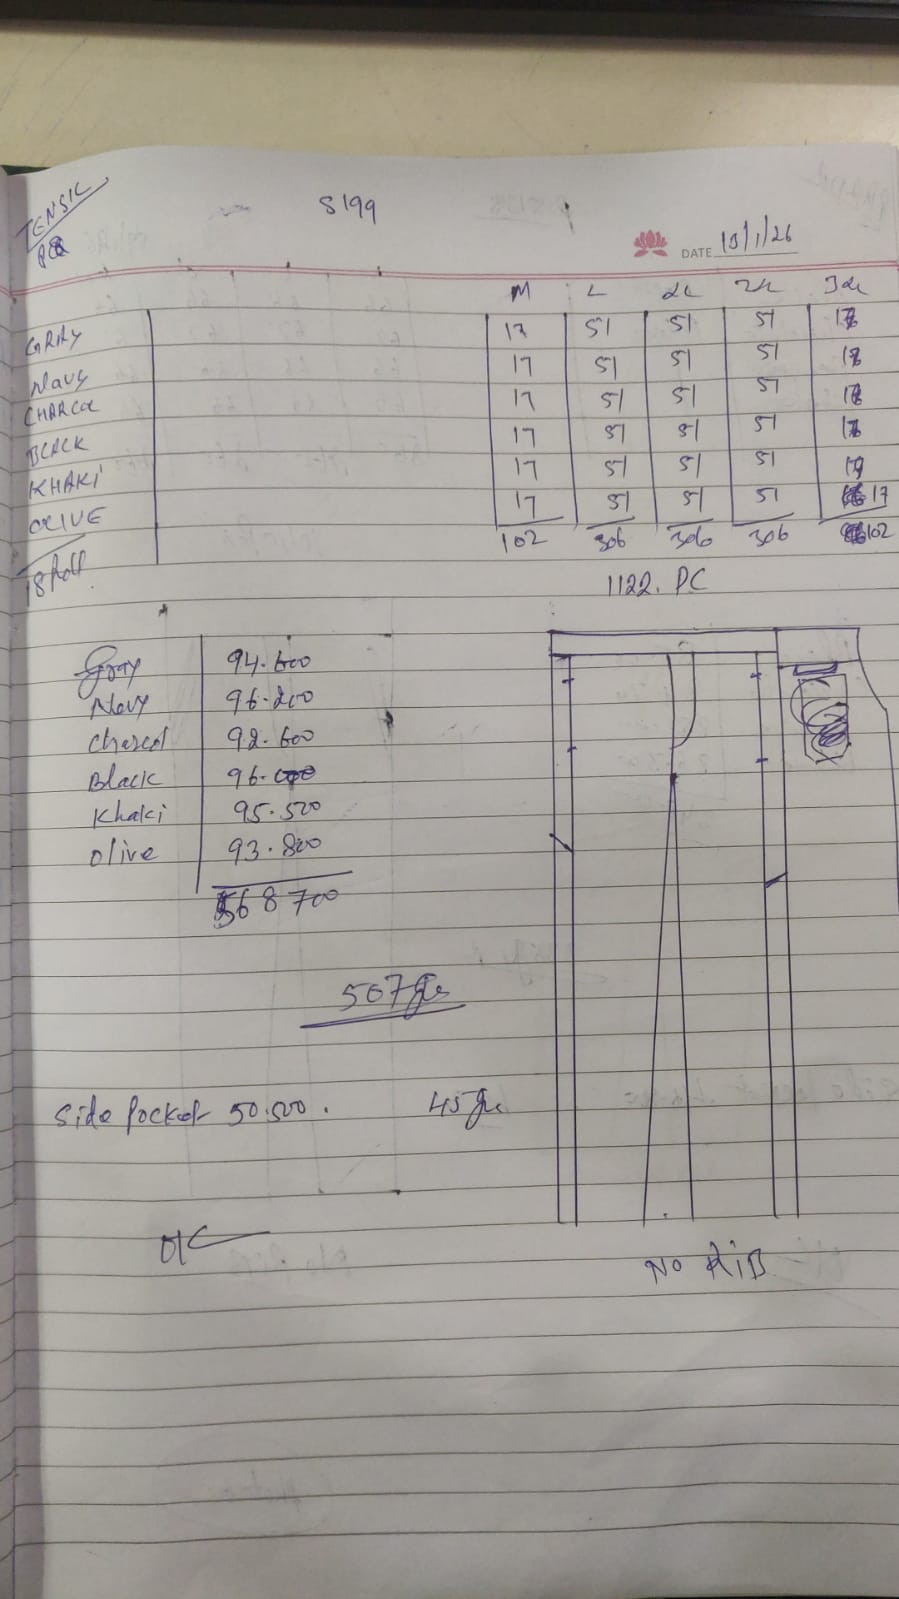 TENSIL
S199
DATE 13/1/26
M L XL 2XL 3XL
GRAY 17 51 51 51 17
NAVY 17 51 51 51 17
CHARCOL 17 51 51 51 17
BLACK 17 51 51 51 17
KHAKI 17 51 51 51 17
OLIVE 17 51 51 51 17
102 306 306 306 102
18 Roll
1122. PC
Gray 94.600
Navy 96.200
Charcol 92.600
Black 96.000
Khaki 95.500
Olive 93.800
568 700
507 gm
Side Pocket 50.500. 45 gm
OK
NO RIB